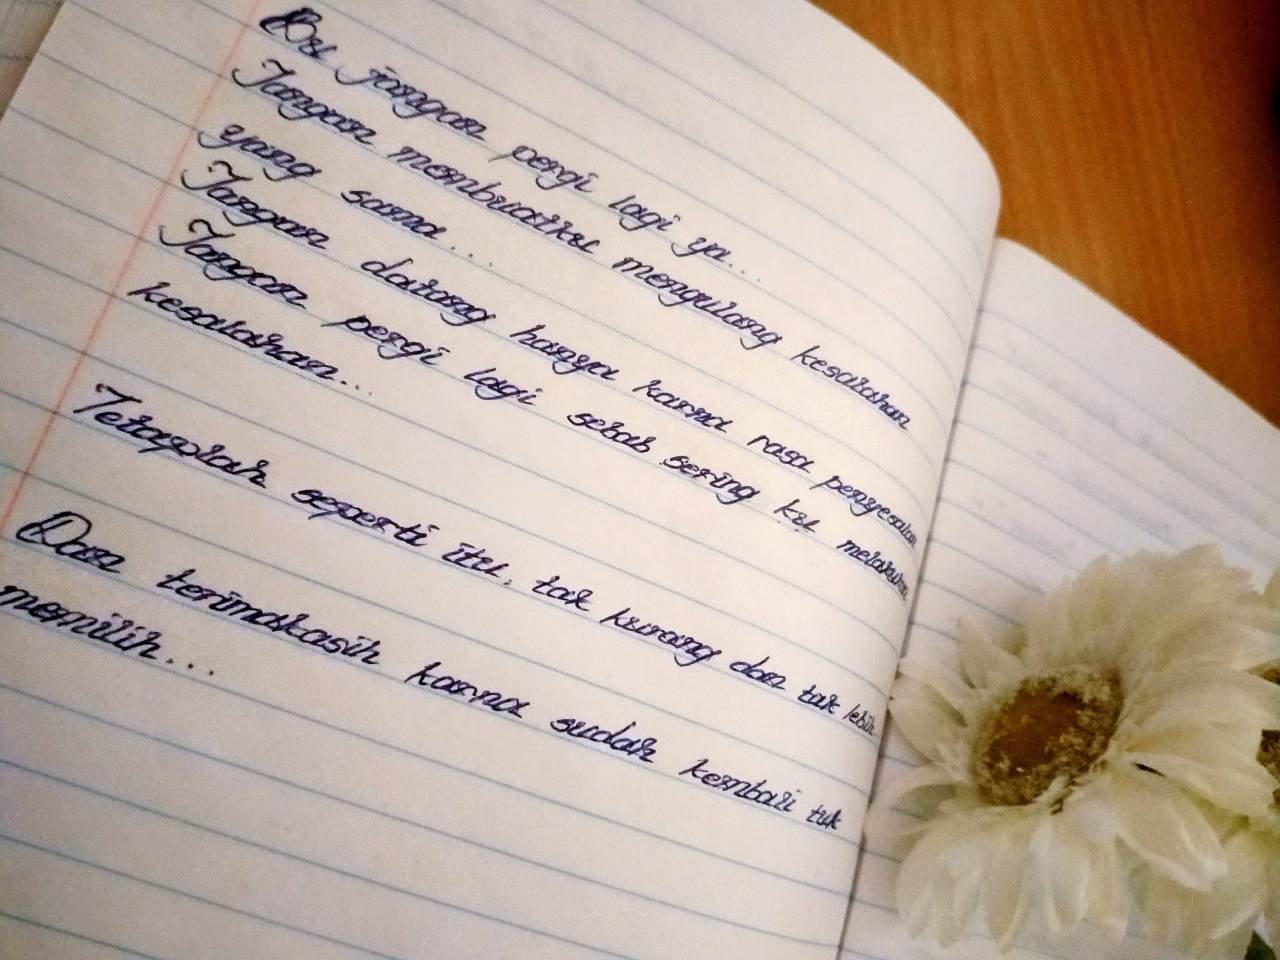 Bu jangan pergi lagi ya...
Jangan membuatku mengulang kesalahan
yang sama...
Jangan datang hanya karna rasa penyesalan
Jangan pergi lagi sebab sering ku melakukan
kesalahan...
Tetaplah seperti itu, tak kurang dan tak lebih
Dan terimakasih karna sudah kembali tuk
memilih...